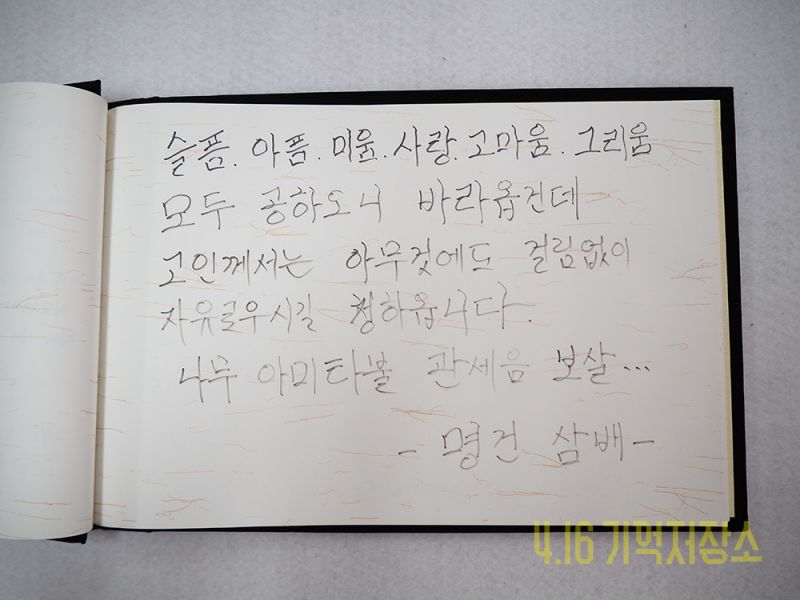 슬픔. 아픔. 미움. 사랑. 고마움. 그리움
모두 공하도니 바라옵건데
고인께서는 아무것에도 걸림없이
자유로우시길 청하옵니다.
나무 아미타불 관세음 보살...
- 명건 삼배 -
4.16 기억저장소